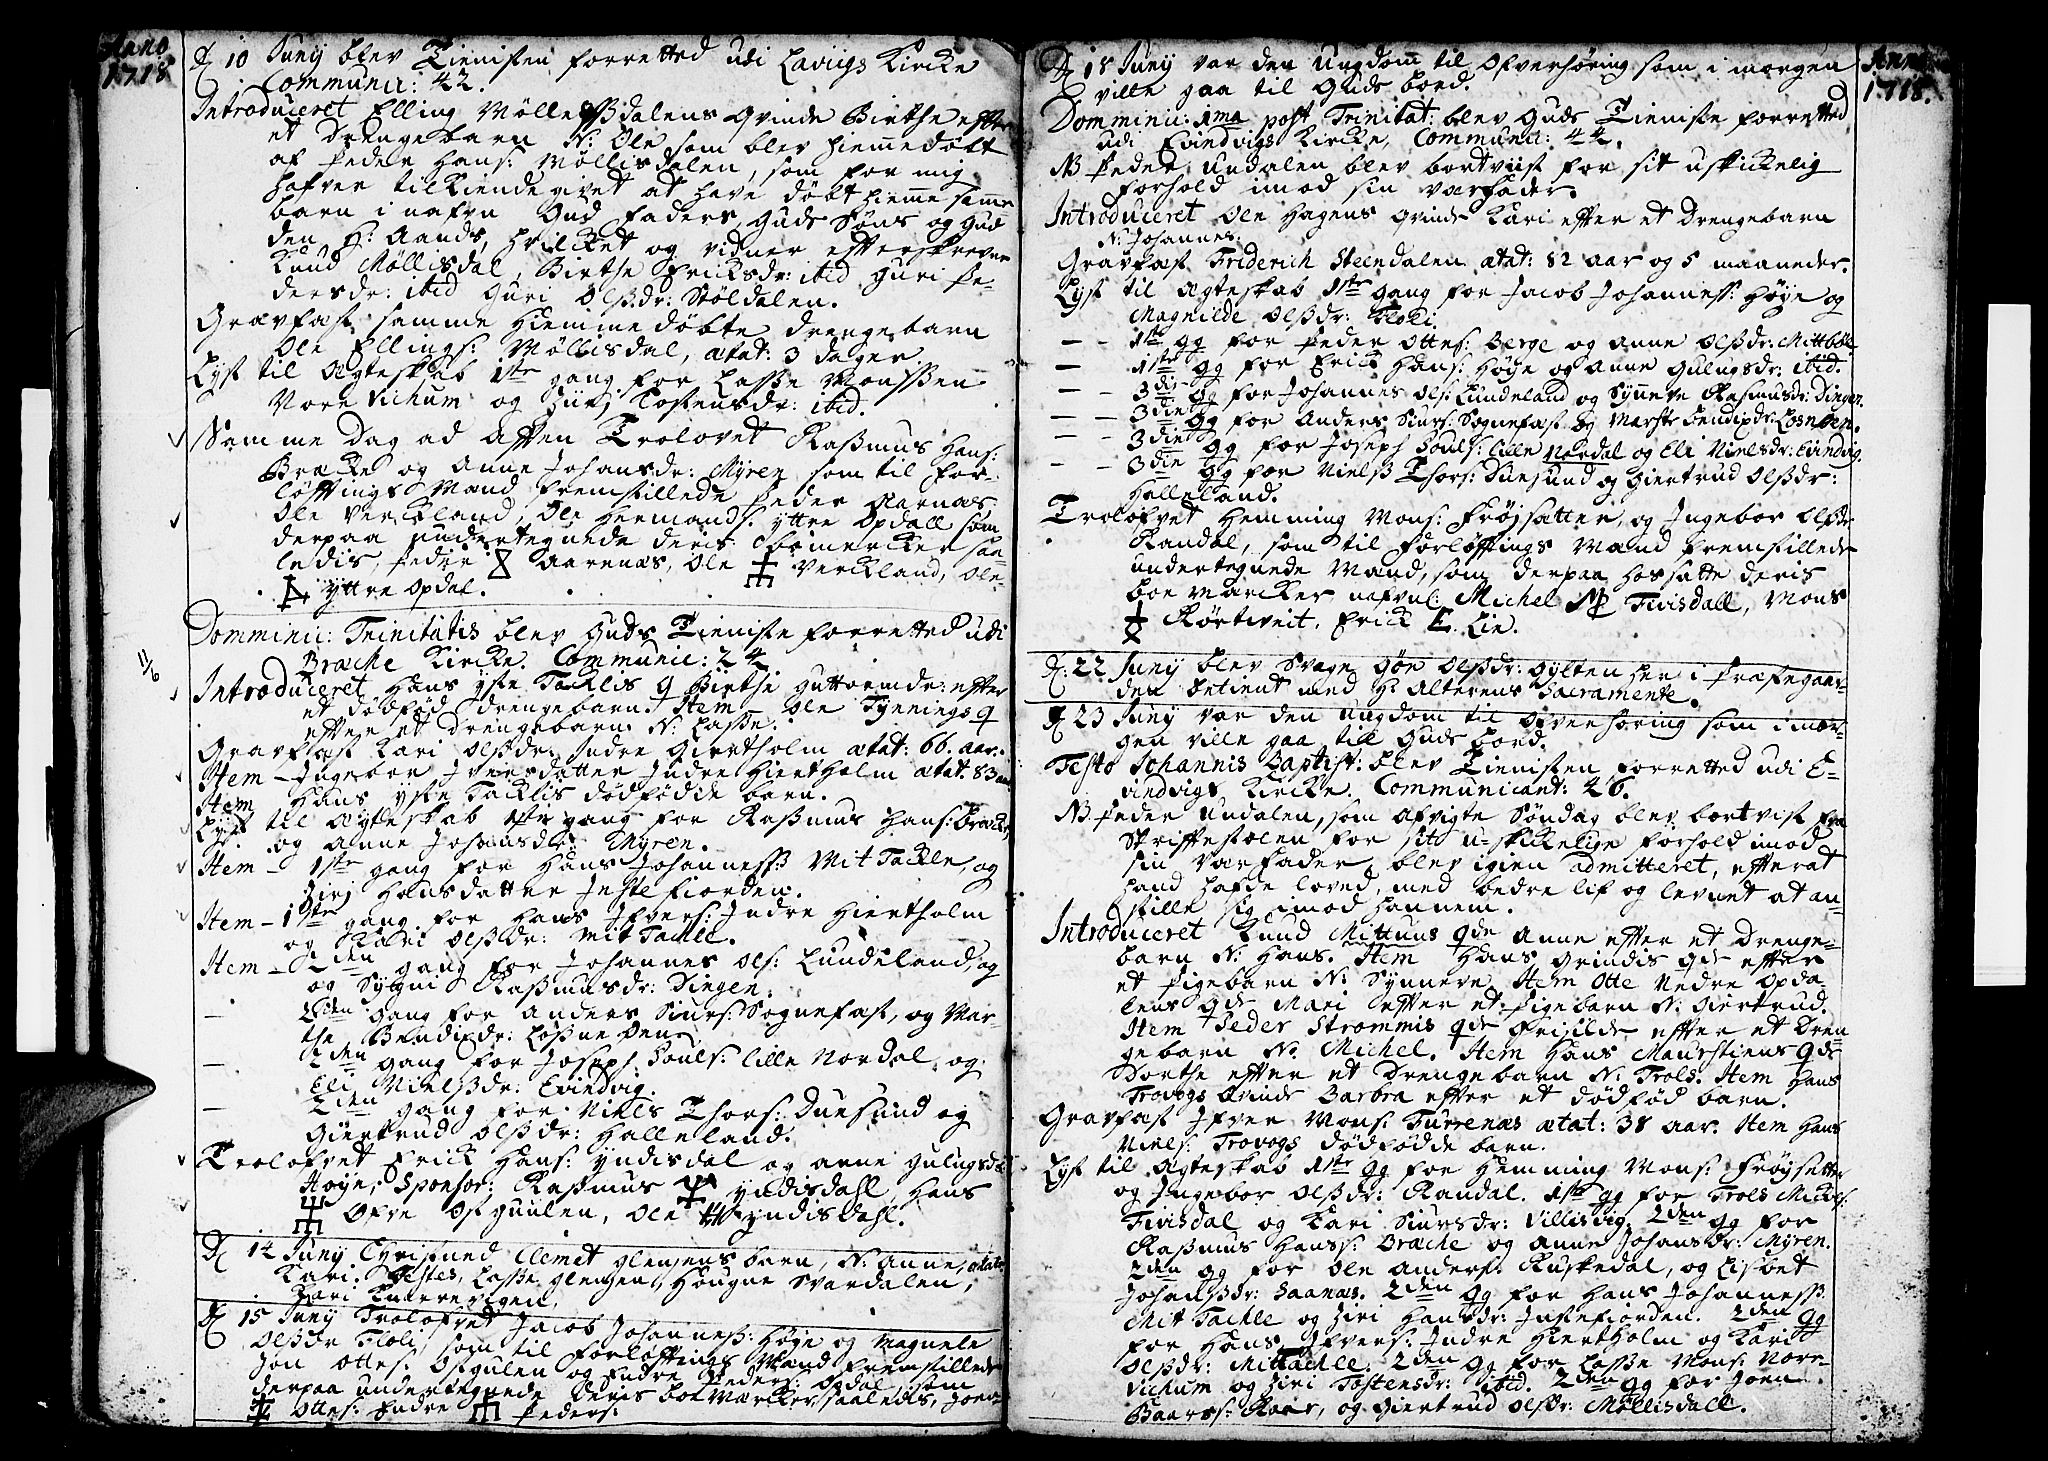 Anno
1718
D 10 Junÿ blev Tienisten forretted udi Lavigs Kircke
Communic: 42.
Introduceret Elling Møllesdalens Qvinde Birthe effter
et drengebarn N: Ole som blev hiemmedøbt
af Peder Hans: Møllisdalen, som for mig
hafver tilkiendegivet at have døbt hiemme samme
barn i nafvn Gud Faders, Guds Søns og Gud
den H: Aands, hvilcket og vidner efterskrevne
Knud Møllisdal, Birthe Ericksdr: ibid Guri Pe-
dersdr: ibid Guri Olsdr: Stöldalen.
Gravfæst samme hiemmedøbte drengebarn
Ole Ellings: Møllisdal, ætat: 3 dager
Lÿst til Ægteskab 1ste gang for Lasse Monssen
Nore Vichum og Ziri Tostensdr: ibid.
Samme Dag ad afften Trolovet Rasmus Hans:
Bræcke og Anne Johansdr: Mÿren som til for-
løfftings Mænd fremstillede Peder Aarnæs
Ole Verckland, Ole Hermands: ÿttre Opdall som
derpaa undertegnede deris bomercker saa-
ledis, Peder Aarenæs, Ole Verckland, Ole
ÿttre Opdal.
Domminic: Trinitatis blev Guds Tieniste forretted udi
11/6
Bræche Kircke. Communic: 24
Introduceret Hans ÿste Tacklis Q Birthe Guttormdr: effter
et dødfød drengebarn. Item Ole Tÿnnings Q
effter et drengebarn N: Lasse.
Gravfæst Kari Olsdr: Indre Hiertholm ætat: 66. aar.
Item – Ingebor Iversdatter Indre Hiertholm ætat: 83 aar
Item Hans ÿste Tacklis dødfødde barn.
Lÿst til Ægteskab 1ste gang for Rasmus Hans: Bræcke,
og Anne Johansdr: Mÿren.
Item – 1ste gang for Hans Johanness: Mit Tackle, og
Ziri Hansdatter Instefiorden.
Item – 1ste gang for Hans Ifvers: Indre Hiertholm
og Kari Olsdr: Mit Tackle.
Item – 2den gang for Johannes Ols: Lundeland, og
og Sÿgni Rasmusdr: Dingen.
– 2den gang for Anders Siurs: Sognefast, og Mar-
the Bendixdr: Losneøen
– 2den gang for Joseph Pouls: lille Nordal, og
Eli Nielsdr: Evindvig.
– 2den gang for Niels Thors: Duesund og
Giertrud Olsdr: Halleland.
Trolofvet Erick Hans: ÿndisdal og Anne Gulugsdr
Høÿe, Sponsor: Rasmus ÿndisdahl, Hans
Ofre Ostguulen, Ole ÿndisdahl.
D 14 Junÿ Christned Clemet Glensens barn, N: Anne, ætat:
Kari. Testes, Lasse Glensen, Hougne Svardalen,
Kari Knarrevigen.
D 15 Junÿ Trolofvet Jacob Johanness: Høÿe og Magnele
Olsdr Floli, som til forløfftings Mænd fremstillede
Jon Ottes: Ostgulen og Endre Peders: Opdal, som
derpaa undertegnede deris bomærcker, saaledis, Jon
Ottes: Endre Peders:
Anno
1718.
D 18 Junÿ var den Ungdom til Ofverhøring som i morgen
ville gaa til Guds bord.
Domminic: 1ma post Trinitat: blev Guds Tieniste forretted
udi Evindvigs Kircke, Communic: 44.
NB Peder Undalen blev bortviist for sit uskickelig
forhold imod sin værfader.
Introduceret Ole Hagens Qvinde Kari effter et Drengebarn
N: Johannes.
Gravfæst Friderich Steendalen ætat: 82 aar og 5 maaneder.
Lÿst til Ægteskab 1ste gang for Jacob Johanness: Høÿe og
Magnilde Olsdr: Floli.
– – 1ste gg for Peder Ottes: Berge og Anne Olsdr: Mittbøe
– 1ste gg for Erick Hans: Høÿe og Anne Gulugsdr: ibid.
– – 3die gg for Johannes Ols: Lundeland og Sÿnneve Rasmusdr: Dingen.
– – 3die gg for Anders Siurs: Sognefast og Marthe Bendixdr: Losnøen.
– 3die gg for Joseph Pouls: lille Nordal og Eli Nielsdr: Evindvig.
– – 3die gg for Niels Thors: Duesund og Giertrud Olsdr:
Halleland.
Trolofvet Hemming Mons: Frøjsætter, og Ingebor Olsdr
Randal, som til forløfftings Mænd fremstillede
undertegnede Mænd, som derpaa hossatte deris
bomærcker nafvnl: Michel Fivisdall, Mons
Kørtveit, Erick E. Lie.
D: 22 Junÿ blev Svage Gøn Olsdr: Gÿlten her i Præstegaar-
den betient med H: Alterens Sacramente.
D 23 Junÿ var den Ungdom til Ofverhøring som i mor-
gen ville gaa till Guds bord.
Festo Johannis Baptist: blev Tienisten forretted udi E-
vindvigs Kircke. Communicant: 26.
NB Peder Undalen, som afvigte Søndag blev bortvist fra
Skrifftestolen for sit u-skickelige forhold imod
sin værfader blev igien admitteret, efterat
hand hafde loved, med bedre lif og levnet at an-
stille sig imod hannem.
Introduceret Knud Mittuns Qde Anne effter et Drenge-
barn N: Hans. Item Hans Grindis Qde effter
et Pigebarn N: Sÿnneve. Item Otte Nedre Opda-
lens Qde Mari effter et Pigebarn N: Giertrud.
Item Peder Strømmis Qde Brijilde effter et Dren
gebarn N: Michel. Item Hans Maurstiens Qde
Dorthe effter et Drengebarn N: Trols. Item Hans
Trovogs Qvinde Barbra effter et dødfød barn.
Gravfæst Ifver Mons: Furrenæs ætat: 38 aar. Item Hans
Niels: Trovogs dødfødde barn.
Lÿst til Ægteskab 1ste gg for Hemming Mons: Frøÿsetter
og Ingebor Olsdr: Randal. 1ste gg for Trols Mickels:
Fivisdal og Kari Siursdr: Villisvig. 2den gg for
Rasmus Hanss: Bræche og Anne Johansdr: Mÿren.
2den gg for Ole Anders: Ruskedal, og Lisbet
Johansdr: Saanæs. 2den gg for Hans Johanness
Mit Tachle og Ziri Hansdr: Instefiorden. 2den gg
for Hans Ifvers: Indre Hiertholm og Kari
Olsdr: Mittachle. 2den gg for Lasse Mons: Nore-
Vichum og Ziri Tostensdr: ibid. 2den gg for Joen
Baards: Raar, og Giertrud Olsdr: Møllisdall.